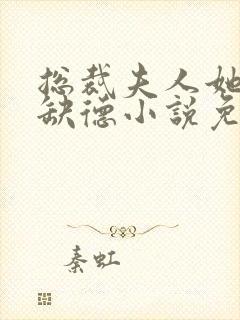 总裁夫人她
缺德小说免
秦虹